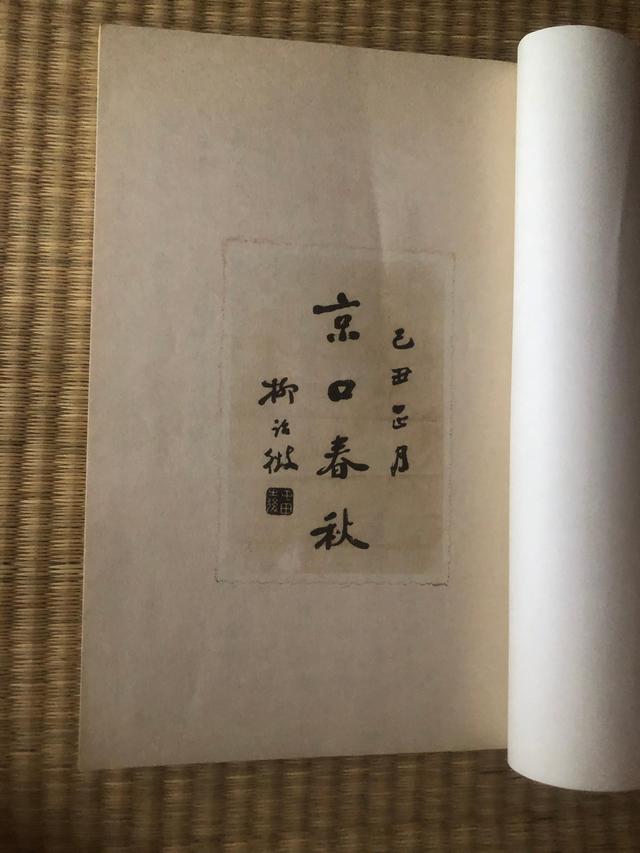 己丑正月
京口春秋
柳诒徵